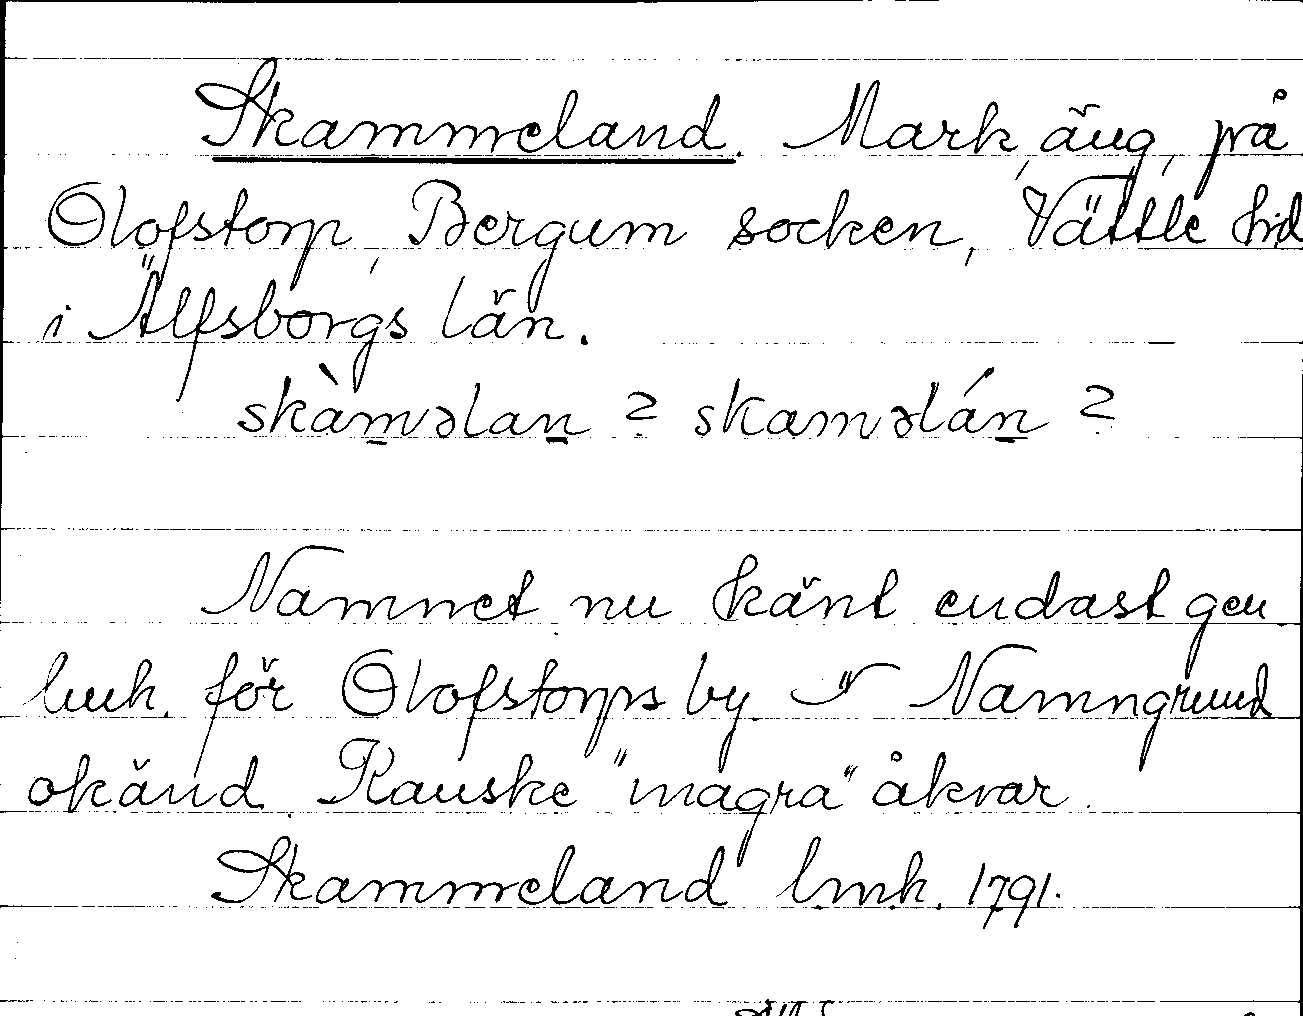 Skammeland. Mark, äng, på
Olofstorp, Bergum socken, Vättle hd
i Älfsborgs län.
skàməlan ? skaməlán ?
Namnet nu känt endast gen
lmk. för Olofstorps by. Namngrund
okänd. Kanske "magra" åkrar.
Skammeland lmk. 1791.